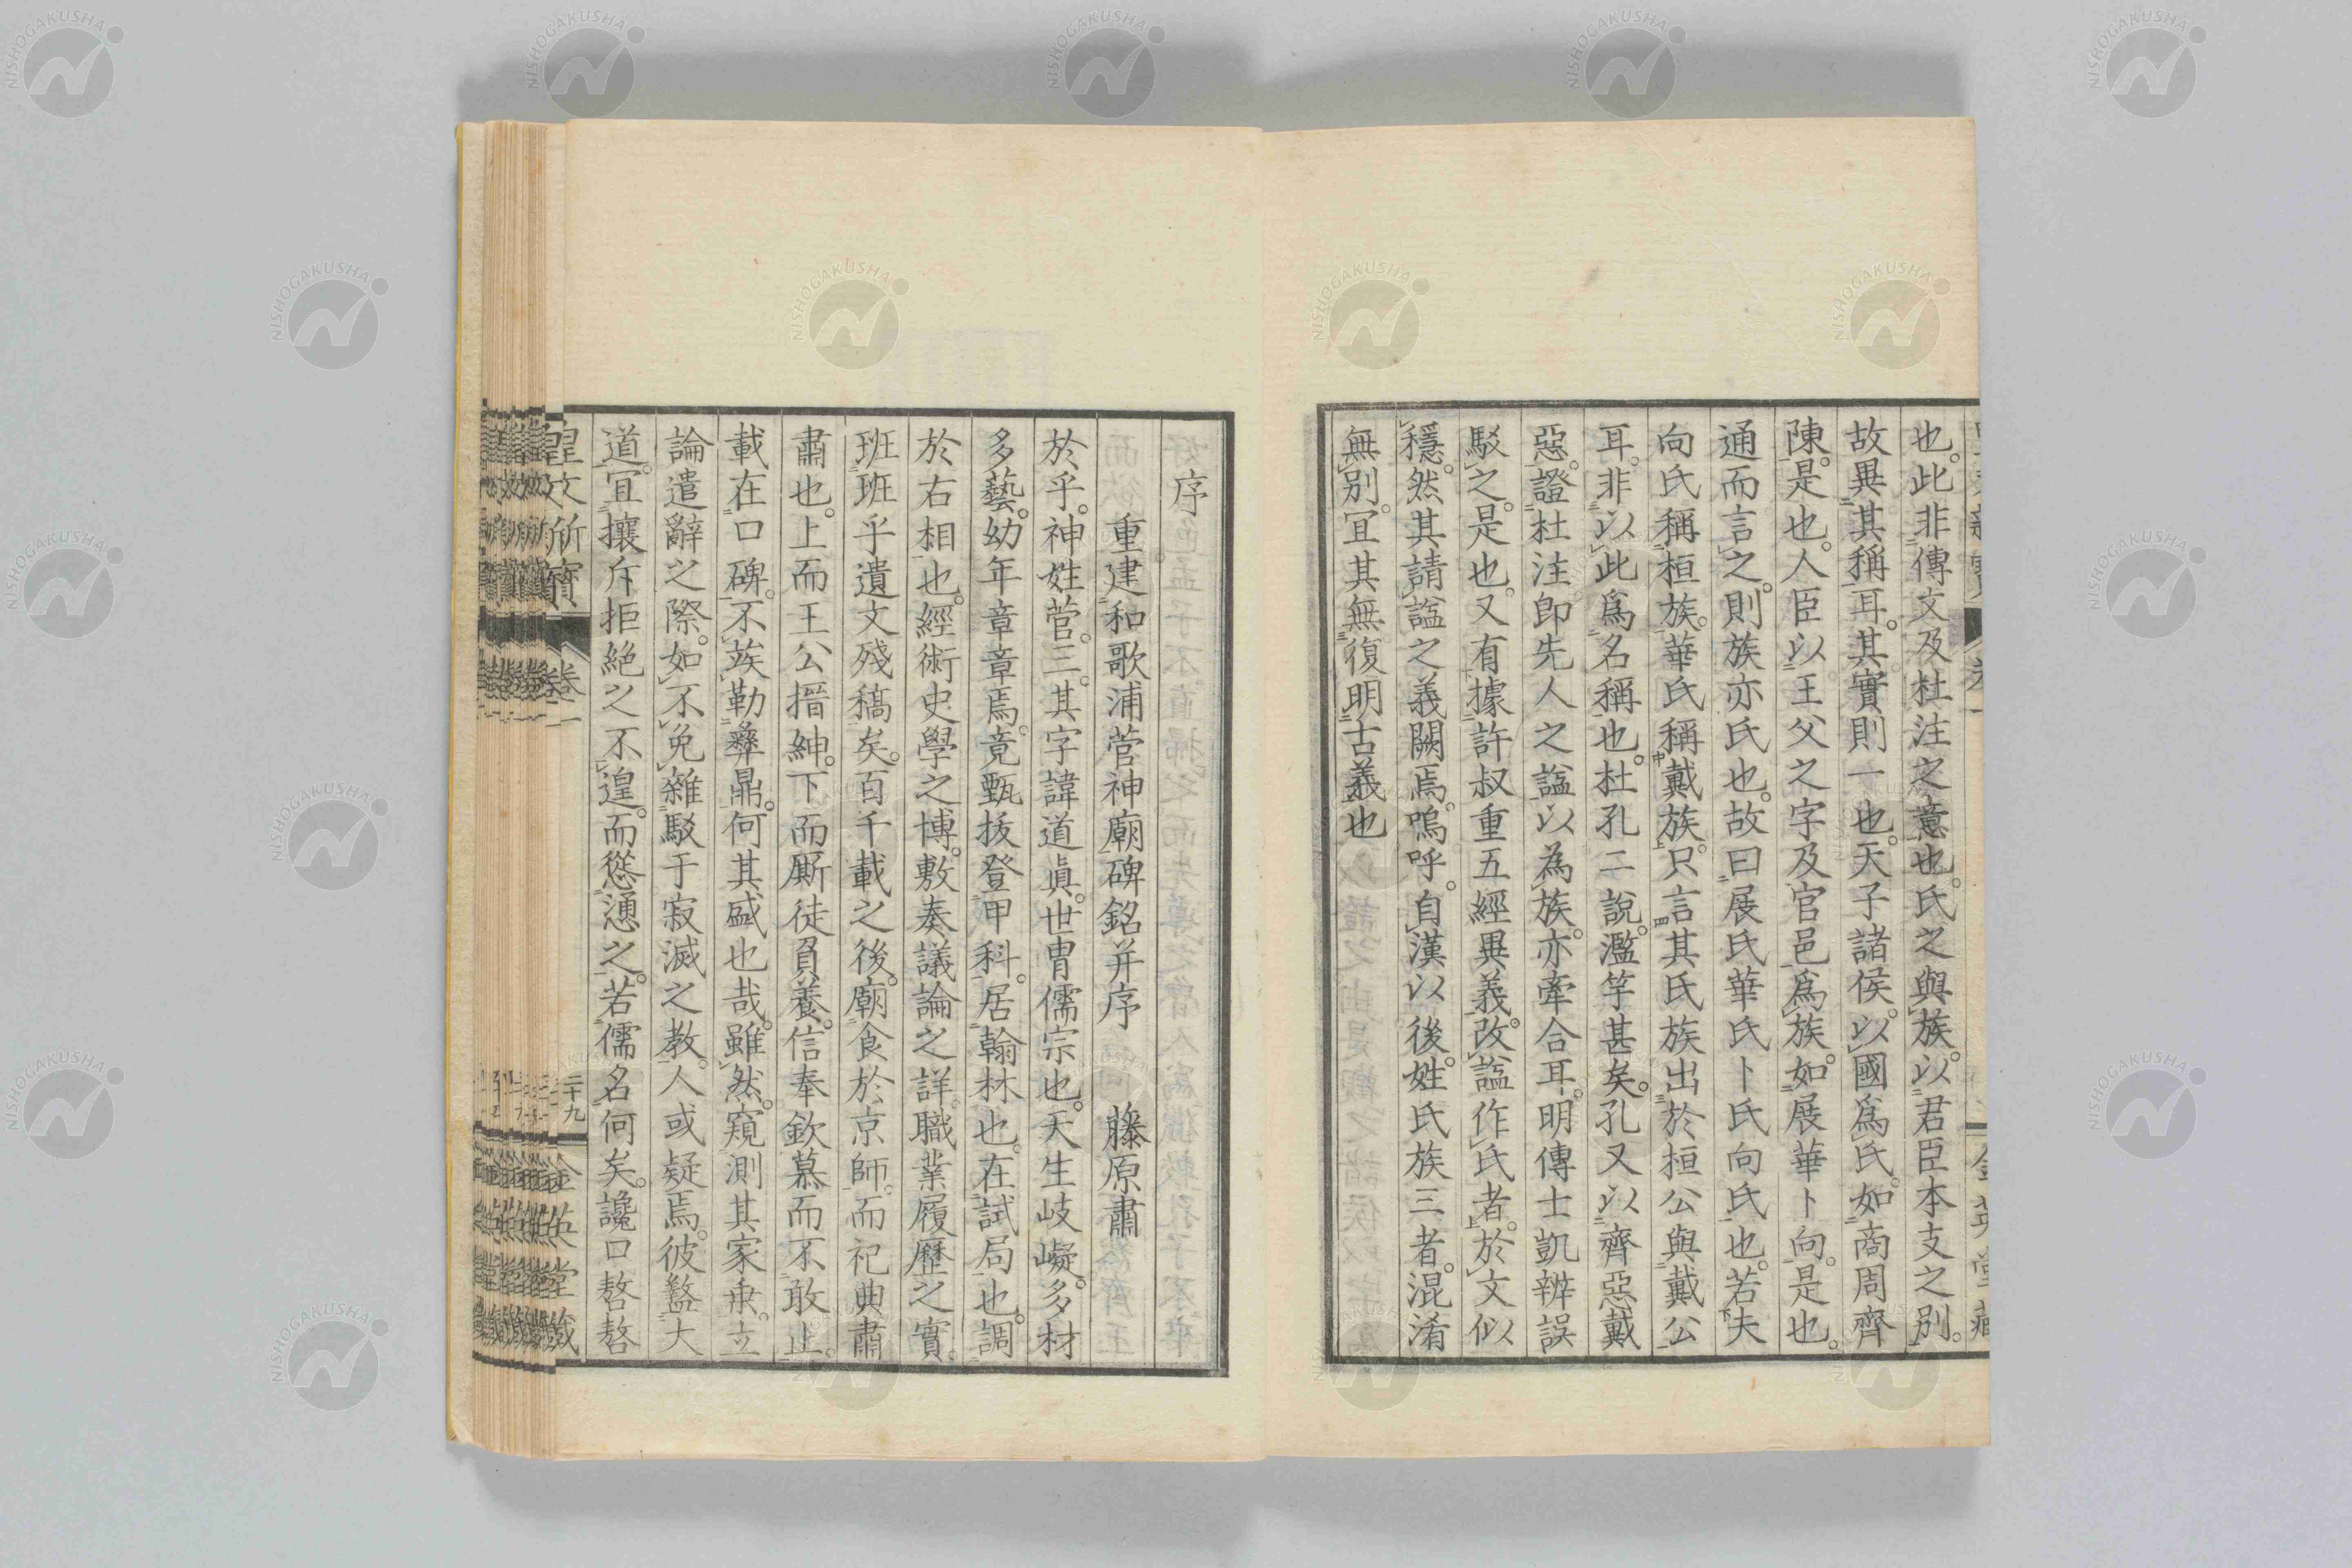 也。此非傳文及杜注之意也。氏之與族。以君臣本支之別。
故異其稱耳。其實則一也。天子諸侯。以國爲氏。如商周齊
陳。是也。人臣以王父之字及官邑爲族。如展華卜向。是也。
通而言之。則族亦氏也。故曰展氏華氏卜氏向氏也。若夫
向氏稱桓族。華氏稱戴族。只言其氏族出於桓公與戴公
耳。非以此爲名稱也。杜孔二說。濫竽甚矣。孔又以齊惡戴
惡。證杜注即先人之諡以為族。亦牽合耳。明傳士凱辨誤
駁之。是也。又有據許叔重五經異義。改諡作氏者。於文似
穩。然其請諡之義闕焉。嗚呼。自漢以後。姓氏族三者。混淆
無別。宜其無復明古義也
序
重建和歌浦菅神廟碑銘并序 藤原肅
於乎。神姓菅。三。其字諱道眞。世胄儒宗也。天生岐嶷。多材
多藝。幼年章章焉。竟甄拔登甲科。居翰林也。在試局也。調
於右相也。經術史學之博。敷奏議論之詳。職業履歷之實。
班班乎遺文殘稿矣。百千載之後。廟食於京師。而祀典肅
肅也。上而王公搢紳。下而厮徒負養。信奉欽慕而不敢止。
載在口碑。不竢勒彝鼎。何其盛也哉。雖然。窺測其家乘。立
論遣辭之際。如不免雜駁于寂滅之教。人或疑焉。彼盭大
道。宜攘斥拒絕之不遑。而慫慂之。若儒名何矣。讒口嗸嗸
皇文所寶 卷一 二十九 金英堂藏